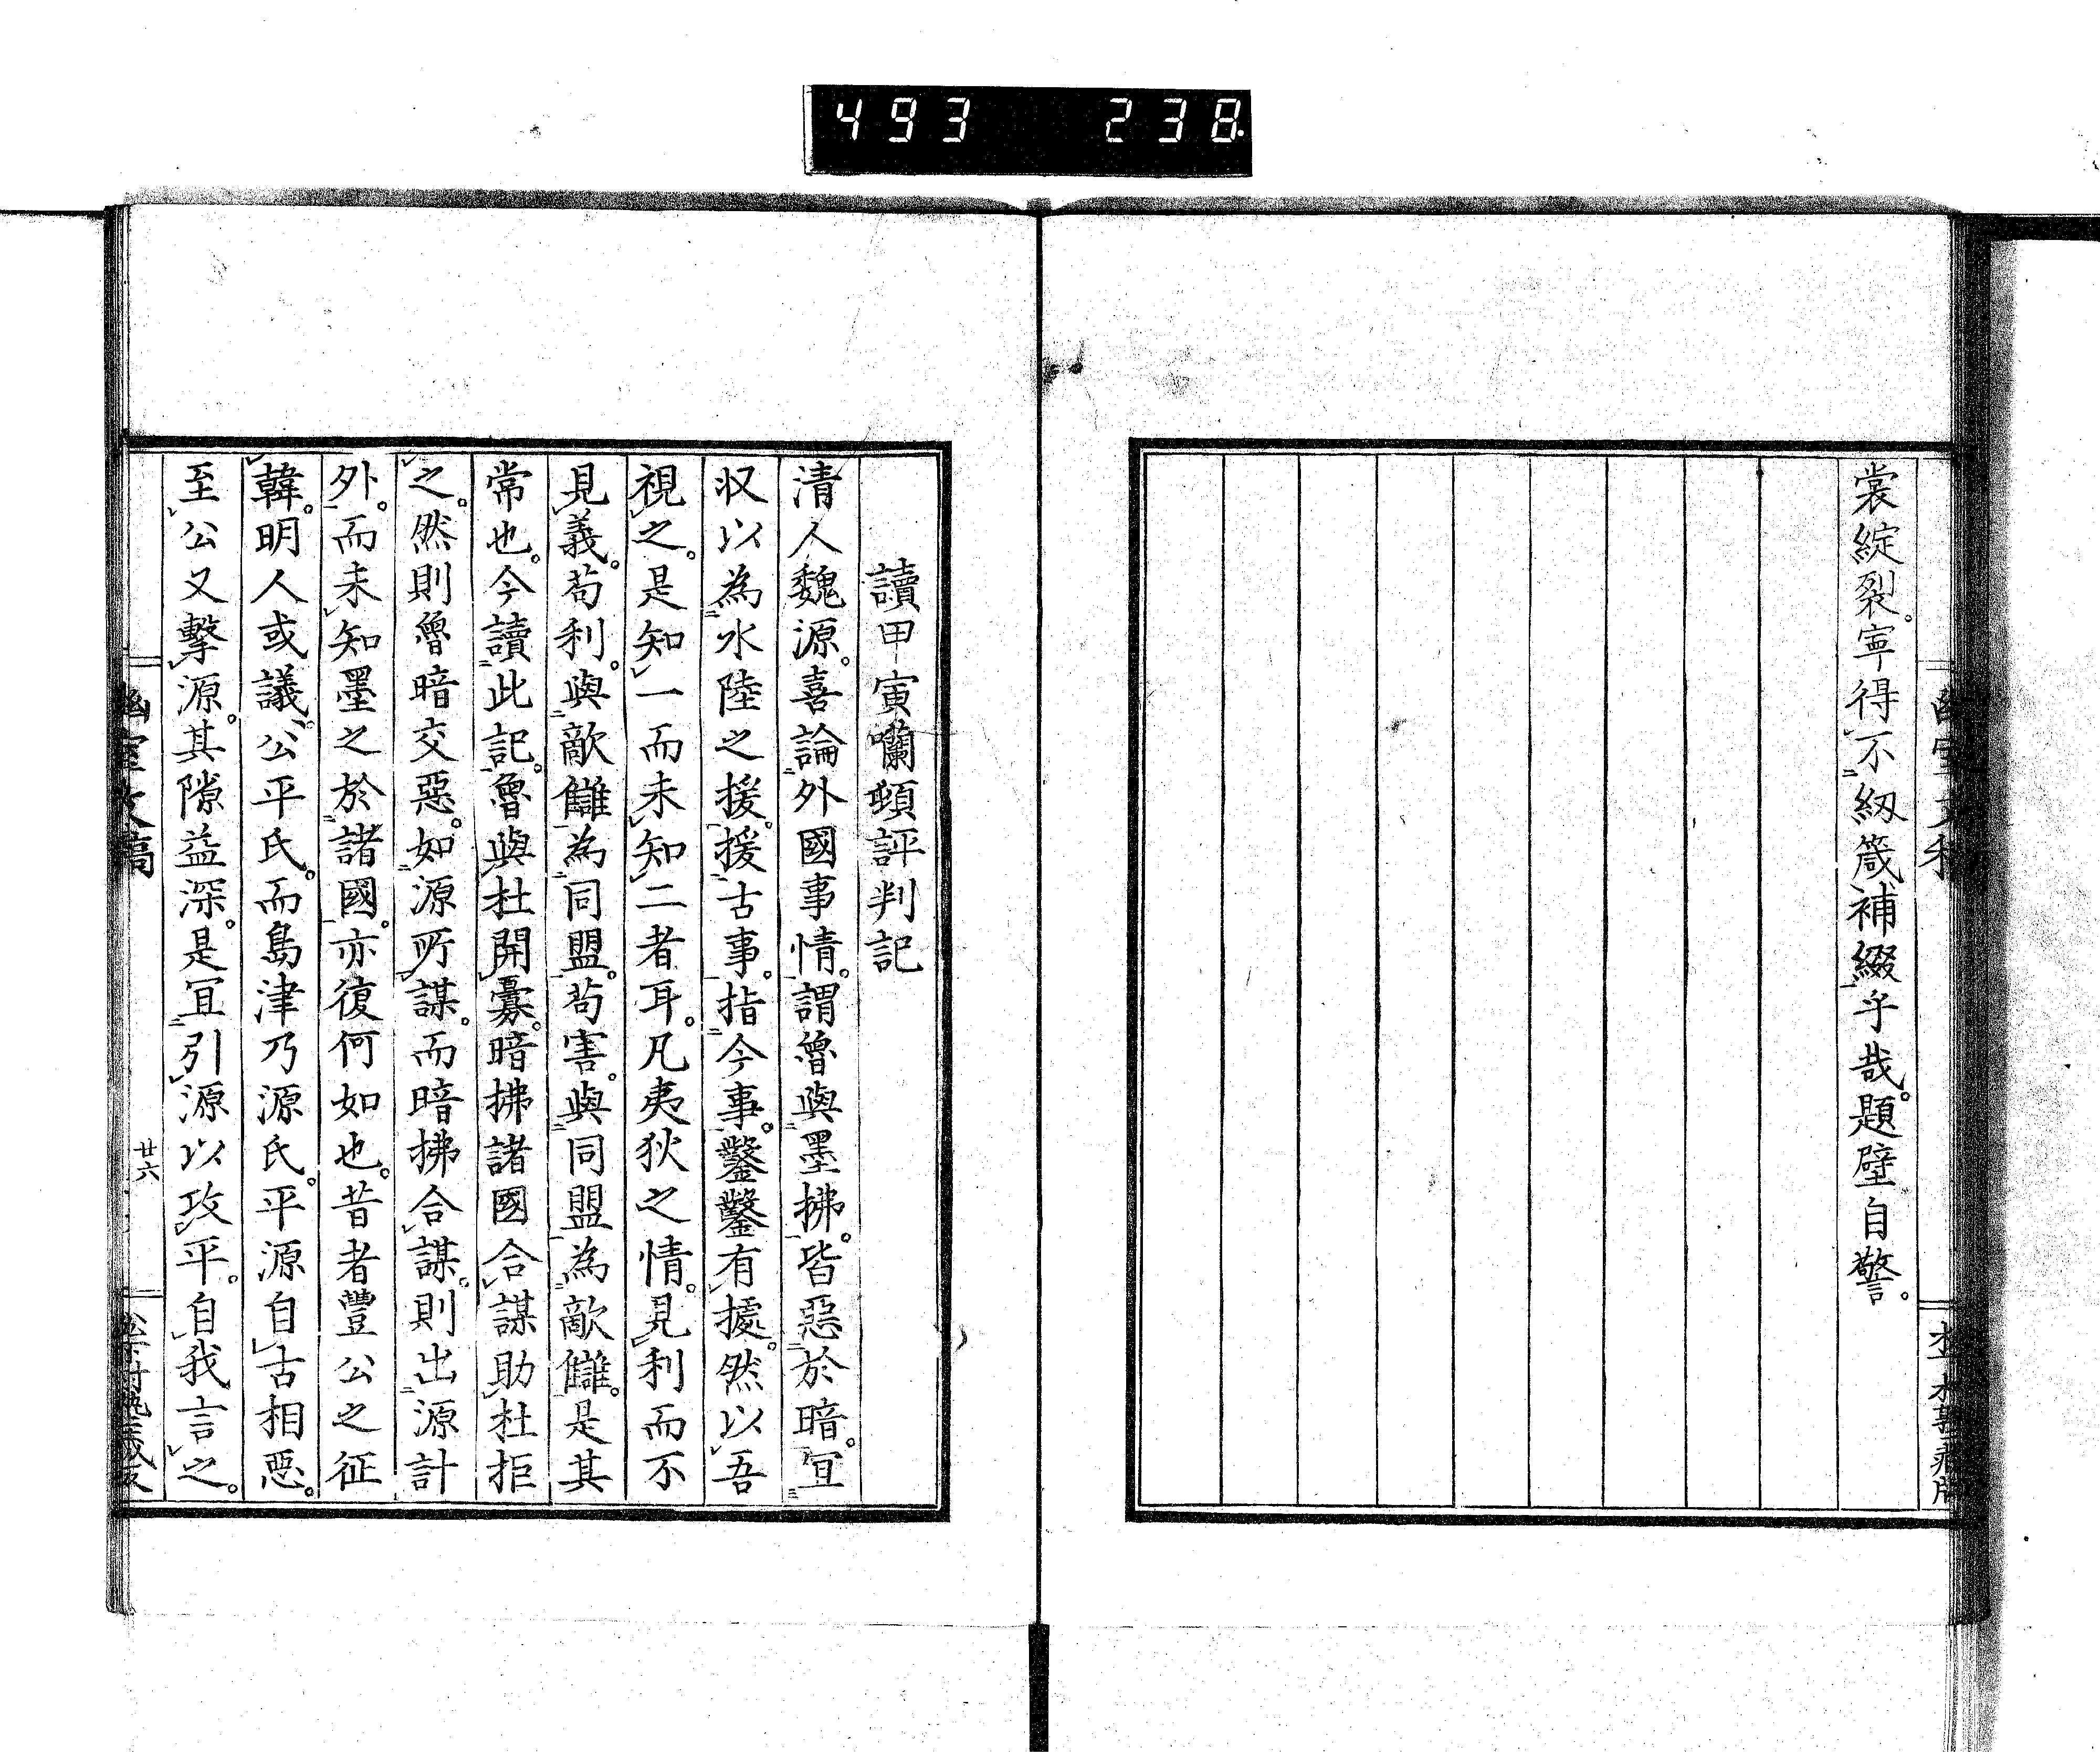 493 238
裳綻裂。寧得不紉箴補綴乎哉。題壁自警。
讀甲寅㘓頓評判記
清人魏源。喜論外國事情。謂魯與墨拂。皆惡於暗。宜
収以為水陸之援。援古事。指今事。鑿鑿有據。然以吾
視之。是知一而未知二者耳。凡夷狄之情。見利而不
見義。苟利。與敵讎為同盟。苟害。與同盟為敵讎。是其
常也。今讀此記。魯與杜開釁。暗拂諸國合謀助杜拒
之。然則魯暗交惡。如源所謀。而暗拂合謀。則出源計
外。而未知墨之於諸國。亦復何如也。昔者豐公之征
韓。明人或議。公平氏。而島津乃源氏。平源自古相惡。
至公又擊源。其隙益深。是宜引源以攻平。自我言之。
幽室文稿
廿六